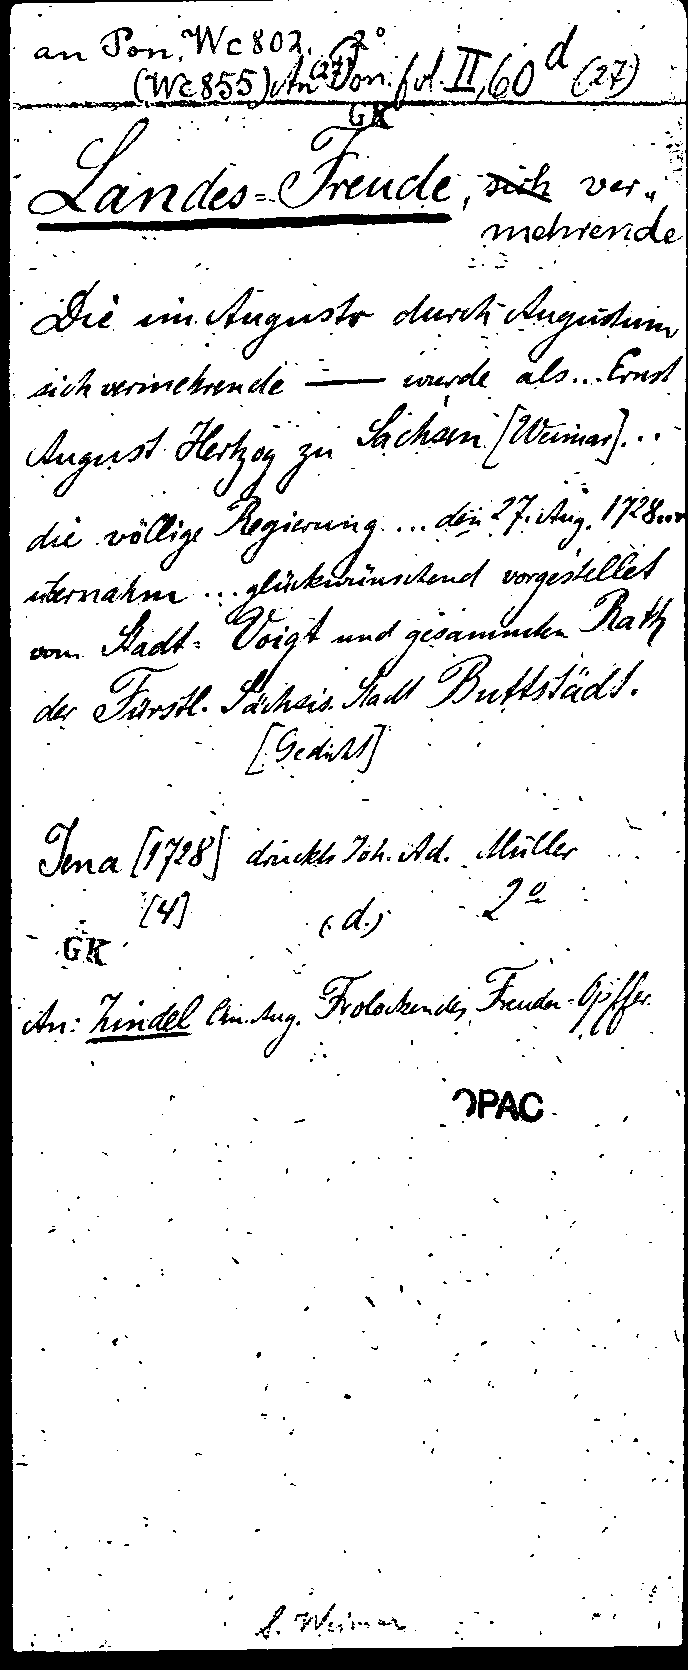 an Pon. Wc 802. 2°
(Wc 855) An Pon. fol. II, 60 d (27)
GK
Landes-Freude, sich ver-
mehrende
Die im Augusto durch Augustum
sich vermehrende — wurde als... Ernst
August Hertzog zu Sachsen [Weimar]...
die völlige Regierung ... den 27. Aug. 1728...
übernahm ... glückwünschend vorgestellet
vom Stadt-Voigt und gesammten Rath
der Fürstl. Sächsis. Stadt Buttstädt.
[Gedicht]
Jena [1728] druckts Joh. Ad. Müller
[4] (d.) 2°
GK
An: Zindel Chn. Aug. Frolockendes Freuden-Opffer.
OPAC
S. Weimar